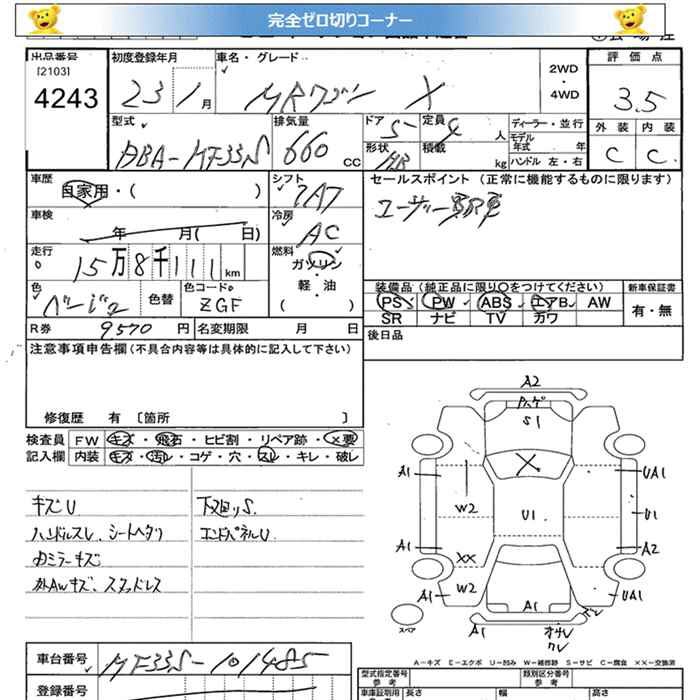 完全ゼロ切りコーナー
出品番号
[2103]
4243
初度登録年月
23 1月
車名・グレード
MRワゴン X
2WD
・
4WD
評価点
3.5
外装 内装
C C
型式
DBA-MF33S
排気量
660 cc
ドア 5
定員 4 人
形状 HB
積載 kg
ディーラー・並行
モデル年式 年
ハンドル 左・右
車歴
自家用・( )
シフト
IAT
車検
年 月( 日)
冷房
AC
走行
15万8千111km
燃料
ガソリン
・
軽・油
( )
色
ベージュ
色替
色コードNo
ZGF
R券 9570 円
名変期限 月 日
セールスポイント (正常に機能するものに限ります)
ユーザー買取車
装備品(純正品に限り○をつけてください)
PS PW ABS エアB AW
SR ナビ TV カワ
新車保証書
有・無
後日品
注意事項申告欄(不具合内容等は具体的に記入して下さい)
修復歴 有 〔箇所 〕
検査員記入欄
FW キズ・飛石・ヒビ割・リペア跡・×要
内装 キズ・汚レ・コゲ・穴・スレ・キレ・破レ
キズU
ハンドルスレ、シートヘタリ
内ミラーキズ
外AWキズ、スタッドレス
下廻りS
エンドパネルU
A2
ハゲ
S1
X
A1
UA1
W2
U1
U1
A1
A2
XX
W2
A1
UA1
A1
A1
スペア
A-キズ E-エクボ U-凹み W-補修跡 S-サビ C-腐食 XX-交換済
車台番号
MF33S-101485
登録番号
型式指定番号
参考
類別区分番号
参考
車庫証明用
参考
長さ 幅 高さ